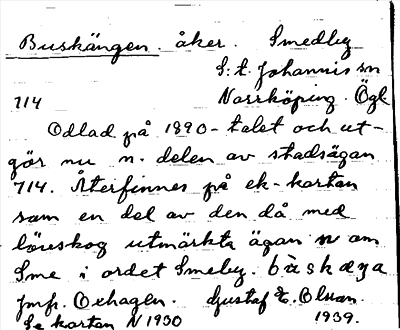 Buskängen. åker. Smedby
S:t. Johannis sn
714 Norrköping. Ögl.
Odlad på 1890-talet och ut-
gör nu n. delen av stadsägan
714. Återfinnes på ek-kartan
som en del av den då med
löveskog utmärkta ägan n om
Sme i ordet Smeby.
Jmfr. Oxhagen. Gustaf E. Olson.
Se kartan N 1930 1939.